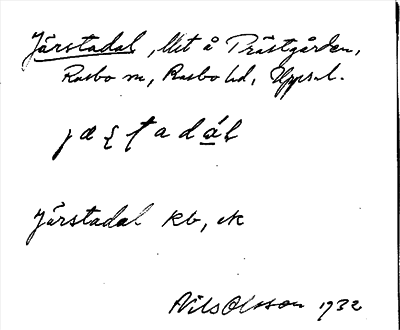 Järstadal, litet å Prästgården,
Rasbo sn, Rasbo hd, Upps. l.
Järstadal kb, ek
Nils Olsson 1932